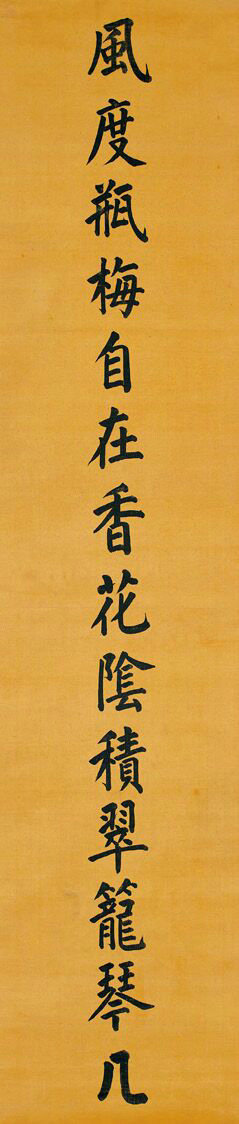 風度瓶梅自在香花陰積翠籠琴几